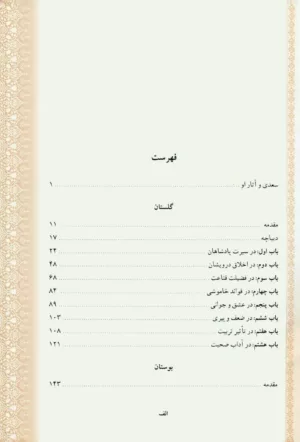 فهرست
سعدی و آثار او ۱
گلستان
مقدمه ۱۱
دیباچه ۱۷
باب اول: در سیرت پادشاهان ۲۴
باب دوم: در اخلاق درویشان ۴۸
باب سوم: در فضیلت قناعت ۶۸
باب چهارم: در فوائد خاموشی ۸۴
باب پنجم: در عشق و جوانی ۸۹
باب ششم: در ضعف و پیری ۱۰۳
باب هفتم: در تأثیر تربیت ۱۰۸
باب هشتم: در آداب صحبت ۱۲۱
بوستان
مقدمه ۱۴۳
الف